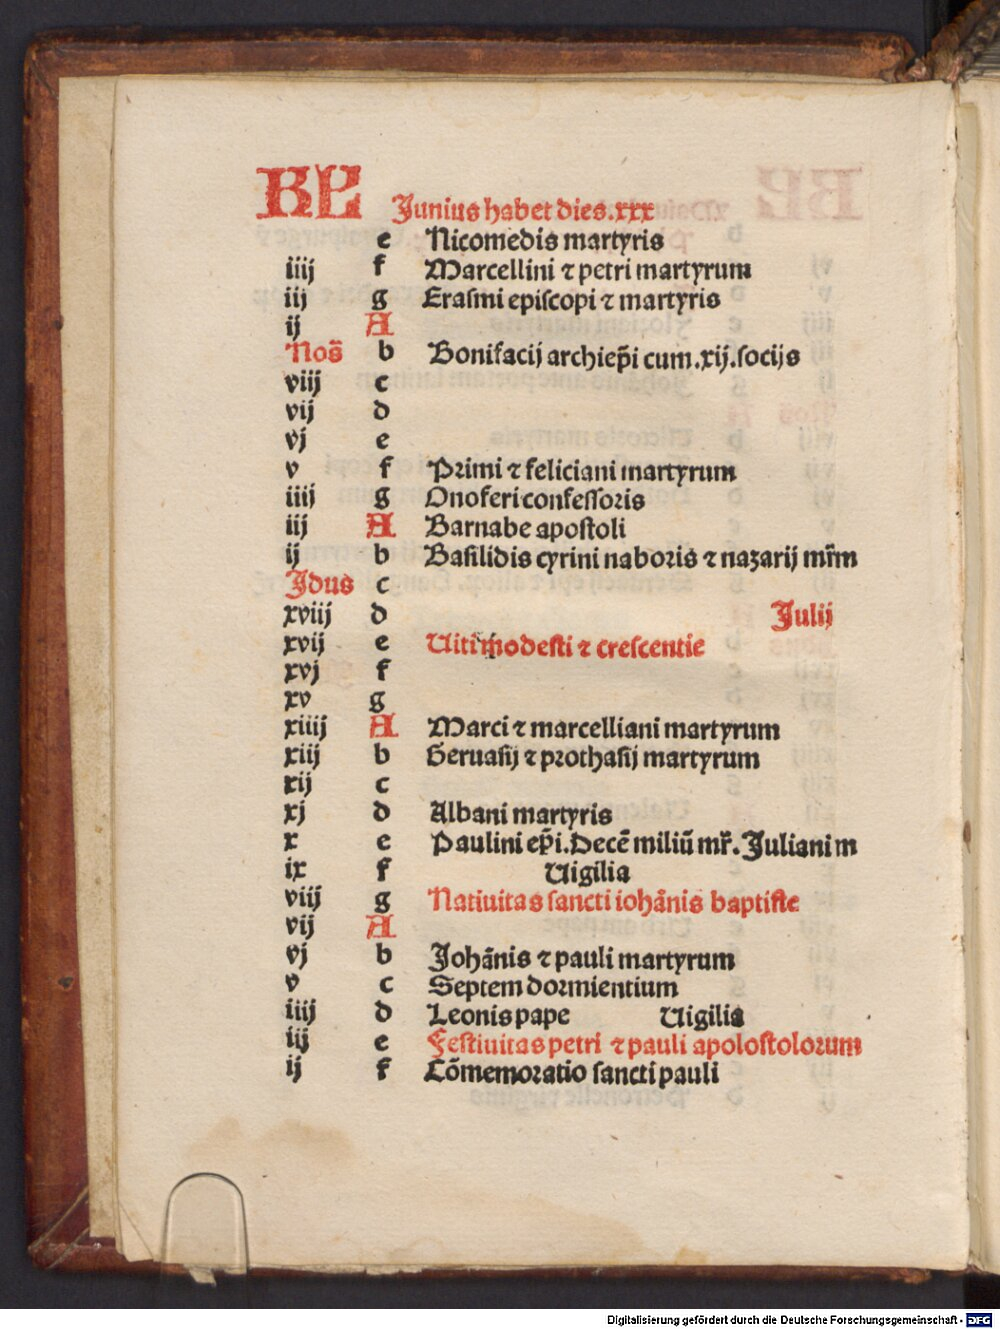 KL Junius habet dies.xxx
e Nicomedis martyris
iiij f Marcellini ⁊ petri martyrum
iij g Erasmi episcopi ⁊ martyris
ij A
Nos̄ b Bonifacij archiep̄i cum.xij.socijs
viij c
vij d
vj e
v f Primi ⁊ feliciani martyrum
iiij g Onoferi confessoris
iij A Barnabe apostoli
ij b Basilidis cyrini naboris ⁊ nazarij mr̄m
Jdus c
xviij d Julij
xvij e Uiti modesti ⁊ crescentie
xvj f
xv g
xiiij A Marci ⁊ marcelliani martyrum
xiij b Geruasij ⁊ prothasij martyrum
xij c
xj d Albani martyris
x e Paulini ep̄i.Decē miliū mr̄.Juliani m
ix f Uigilia
viij g Natiuitas sancti iohānis baptiste
vij A
vj b Johānis ⁊ pauli martyrum
v c Septem dormientium
iiij d Leonis pape Uigilia
iij e Festiuitas petri ⁊ pauli apolostolorum
ij f Cōmemoratio sancti pauli
Digitalisierung gefördert durch die Deutsche Forschungsgemeinschaft - DFG